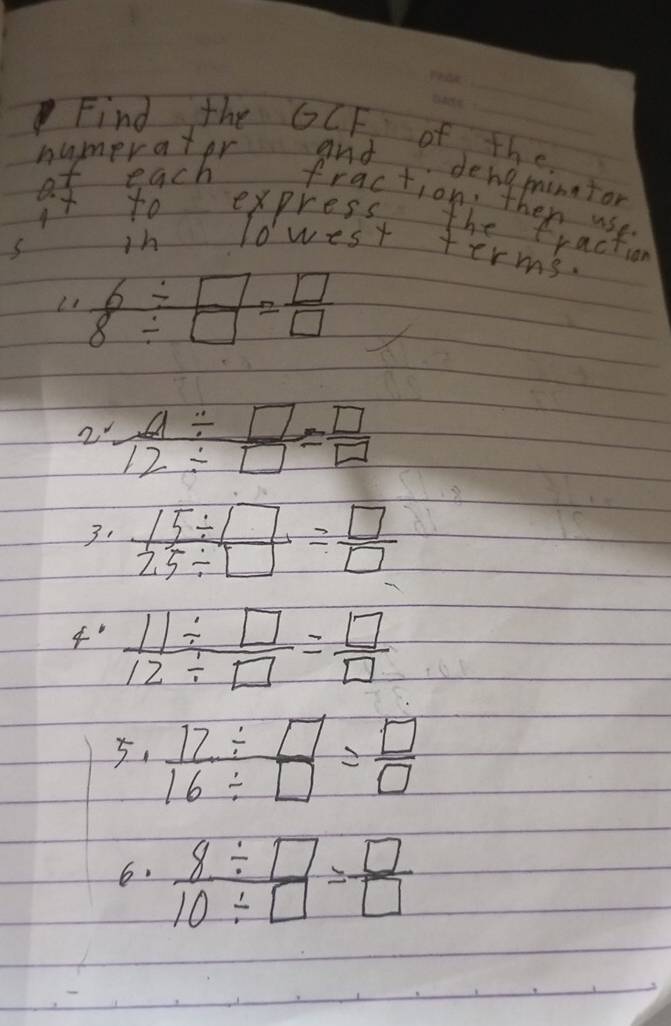 Find the GCF of the
numerator and denominator
of each fraction, then use
it to express the fraction
s in lowest terms.
1. 6 ÷ □ = □
8 ÷ □ □
2. ÷ □ = □
12 ÷ □ □
3. 15 ÷ □ = □
25 ÷ □ □
4. 11 ÷ □ = □
12 ÷ □ □
5. 12 ÷ □ = □
16 ÷ □ □
6. 8 ÷ □ = □
10 ÷ □ □